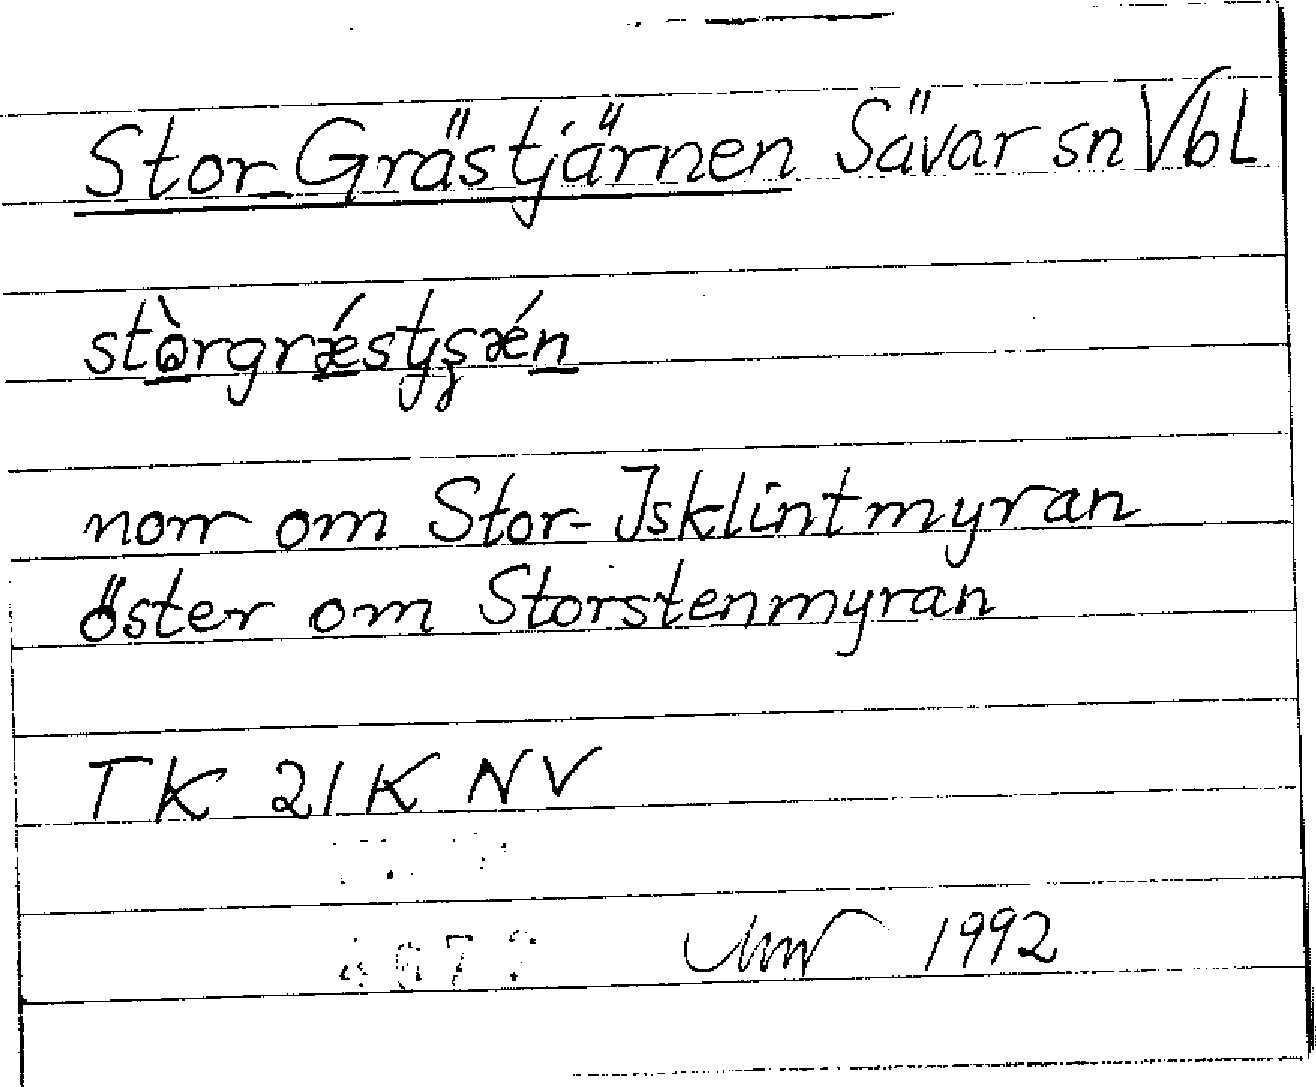 Stor-Grästjärnen Sävar sn Vbl
stòrgrǽstjʂǽn
norr om Stor-Isklintmyran
öster om Storstenmyran
TK 21K NV
1992